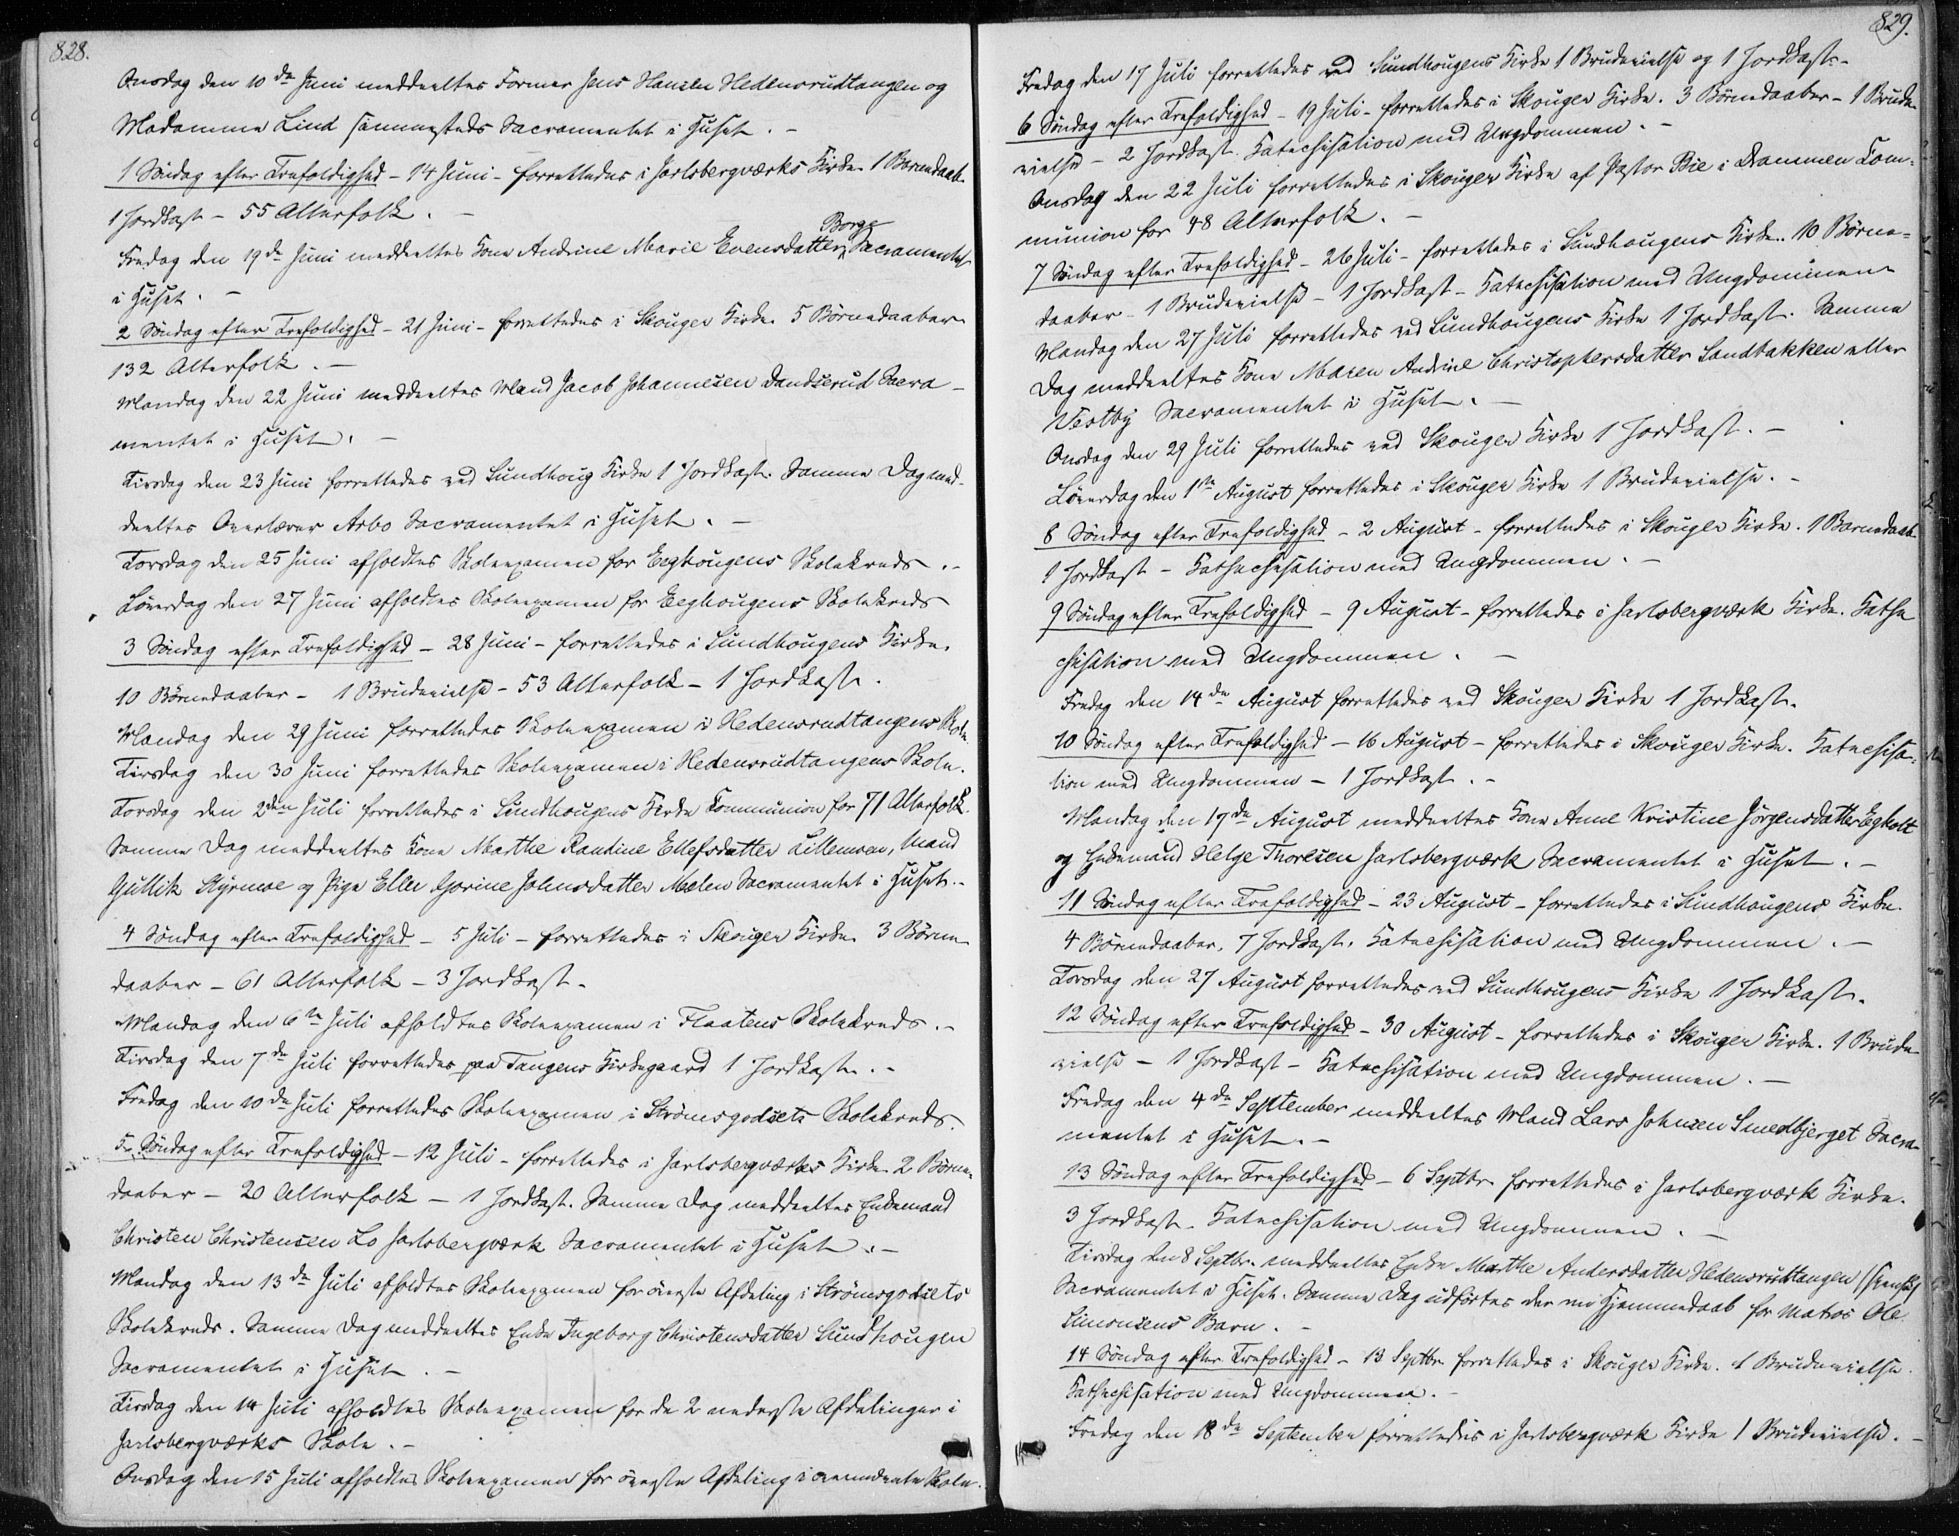 828.
Onsdag den 10de Juni meddeeltes Former Jens Hansen Hedensrudtangen og
Madamme Lind sammesteds Sacramentet i Huset. -
1 Søndag efter Trefoldighed - 14 Juni - forrettedes i Jarlsbergværks Kirke 1 Barnedaab
1 Jordkast - 55 Alterfolk. -
Borge
Fredag den 19de Juni meddeeltes Kone Andrine Marie Evensdatter Sacramentet
i Huset. -
2 Søndag efter Trefoldighed - 21 Juni - forrettedes i Skouger Kirke 5 Børnedaaber
132 Alterfolk. -
Mandag den 22 Juni meddeeltes Mand Jacob Johannesen Dandserud Sacra-
mentet i Huset. -
Tirsdag den 23 Juni forrettedes ved Sundhoug Kirke 1 Jordkast. Samme Dag med-
deeltes Overlærer Arbo Sacramentet i Huset. -
Torsdag den 25 Juni afholdtes Skoleexamen for Eeghougens Skolekreds. -
Løverdag den 27 Juni afholdtes Skoleexamen for Eeghougens Skolekreds
3 Søndag efter Trefoldighed - 28 Juni - forrettedes i Sundhougens Kirke.
10 Børnedaaber - 1 Brudevielse - 53 Alterfolk - 1 Jordkast.
Mandag den 29 Juni forrettedes Skoleexamen i Hedensrudtangens Skole
Tirsdag den 30 Juni forrettedes Skoleexamen i Hedensrudtangens Skole.
Torsdag den 2den Juli forrettedes i Sundhougens Kirke Communion for 71 Alterfolk.
Samme Dag meddeeltes Kone Marthe Randine Ellefsdatter Lillemoen, Mand
Gullik Styrmoe og Pige Elle Gorine Johnsdatter Moelen Sacramentet i Huset. -
4 Søndag efter Trefoldighed - 5 Juli - forrettedes i Skouger Kirke 3 Børne-
daaber - 61 Alterfolk - 3 Jordkast.
Mandag den 6te Juli afholdtes Skoleexamen i Flaatens Skolekreds. -
Tirsdag den 7de Juli forrettedes paa Tangens Kirkegaard 1 Jordkast. -
Fredag den 10de Juli forrettedes Skoleexamen i Strømsgodsets Skolekreds.
5 Søndag efter Trefoldighed - 12 Juli - forrettedes i Jarlsbergværks Kirke 2 Børne-
daaber - 20 Alterfolk - 1 Jordkast. Samme Dag meddeeltes Enkemand
Christen Christensen Lo Jarlsbergværk Sacramentet i Huset. -
Mandag den 13de Juli afholdtes Skoleexamen for øverste Afdeling i Strømsgodsets
Skolekreds. Samme Dag meddeeltes Enke Ingeborg Christensdatter Sundhougen
Sacramentet i Huset. -
Tirsdag den 14 Juli afholdtes Skoleexamen for de 2 nederste Afdelinger i
Jarlsbergværks Skole. -
Onsdag den 15 Juli afholdtes Skoleexamen for øverste Afdeling i ovennævnte Skole.
829.
Fredag den 17 Juli forrettedes ved Sundhougens Kirke 1 Brudevielse og 1 Jordkast. -
6 Søndag efter Trefoldighed - 19 Juli - forrettedes i Skouger Kirke. 3 Børnedaaber - 1 Brude-
vielse - 2 Jordkast. Katechisation med Ungdommen. -
Onsdag den 22 Juli forrettedes i Skouger Kirke af Pastor Bie i Drammen Com-
munion for 48 Alterfolk. -
7 Søndag efter Trefoldighed - 26 Juli - forrettedes i Sundhougens Kirke. 10 Børne-
daaber - 1 Brudevielse - 1 Jordkast - Katechisation med Ungdommen
Mandag den 27 Juli forrettedes ved Sundhougens Kirke 1 Jordkast. Samme
Dag meddeeltes Kone Maren Andrine Christophersdatter Sandbakken eller
Vestby Sacramentet i Huset. -
Onsdag den 29 Juli forrettedes ved Skouger Kirke 1 Jordkast. -
Løverdag den 1ste August forrettedes i Skouger Kirke 1 Brudevielse. -
8 Søndag efter Trefoldighed - 2 August - forrettedes i Skouger Kirke. 1 Barnedaab
1 Jordkast - Kathechisation med Ungdommen. -
9 Søndag efter Trefoldighed - 9 August - forrettedes i Jarlsbergværk Kirke. Kathe
chisation med Ungdommen. -
Fredag den 14de August forrettedes ved Skouger Kirke 1 Jordkast.
10 Søndag efter Trefoldighed - 16 August - forrettedes i Skouger Kirke. Katechisa-
tion med Ungdommen - 1 Jordkast. -
Mandag den 17de August meddeeltes Kone Anne Kristine Jørgensdatter Egholt
og Enkemand Helge Thoresen Jarlsbergværk Sacramentet i Huset. -
11 Søndag efter Trefoldighed - 23 August - forrettedes i Sundhougens Kirke.
4 Børnedaaber, 7 Jordkast. Katechisation med Ungdommen. -
Torsdag den 27 August forrettedes ved Sundhougens Kirke 1 Jordkast.
12 Søndag efter Trefoldighed - 30 August - forrettedes i Skouger Kirke. 1 Brude-
vielse - 1 Jordkast - Katechisation med Ungdommen. -
Fredag den 4de September meddeeltes Mand Lars Johnsen Smedbjerget Sacra-
mentet i Huset. -
13 Søndag efter Trefoldighed - 6 Septbr. forrettedes i Jarlsbergværk Kirke.
3 Jordkast. Katechisation med Ungdommen. -
Tirsdag den 8 Septbr. meddeeltes Enke Marthe Andersdatter Hedensrudtangen
Sacramentet i Huset. Samme Dag udførtes der en Hjemmedaab for Matros Ole
Simonsens Barn. -
14 Søndag efter Trefoldighed - 13 Septbr forrettedes i Skouger Kirke. 1 Brudevielse.
Kathechisation med Ungdommen. -
Fredag den 18de September forrettedes i Jarlsbergværk Kirke 1 Brudevielse. -